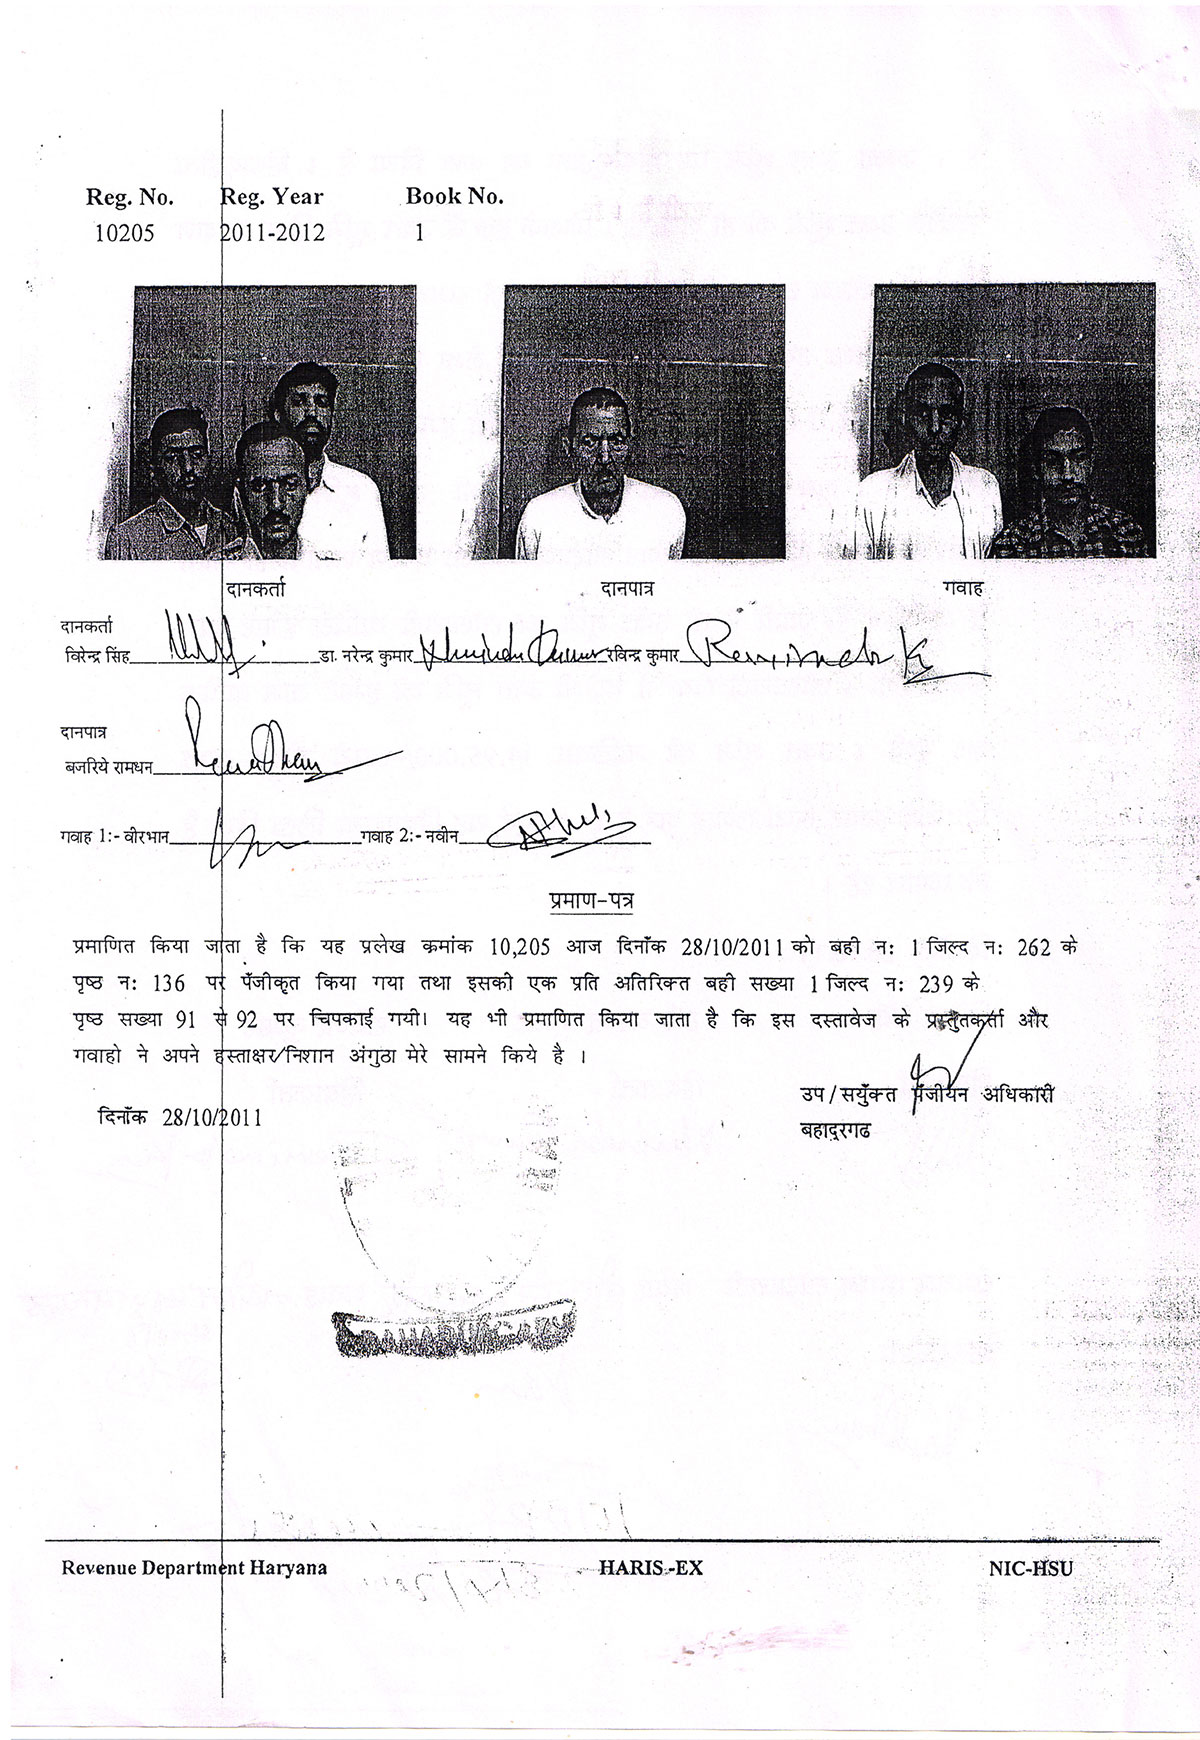 Reg. No. Reg. Year Book No.
10205 2011-2012 1
दानकर्ता दानपात्र गवाह
दानकर्ता
विरेन्द्र सिंह डा. नरेन्द्र कुमार रविन्द्र कुमार Ravinder K
दानपात्र
बजरिये रामधन
गवाह 1:- वीरभान गवाह 2:- नवीन
प्रमाण-पत्र
प्रमाणित किया जाता है कि यह प्रलेख क्रमांक 10,205 आज दिनाँक 28/10/2011 को बही न: 1 जिल्द न: 262 के
पृष्ठ न: 136 पर पँजीकृत किया गया तथा इसकी एक प्रति अतिरिक्त बही सख्या 1 जिल्द न: 239 के
पृष्ठ सख्या 91 से 92 पर चिपकाई गयी। यह भी प्रमाणित किया जाता है कि इस दस्तावेज के प्रस्तुतकर्ता और
गवाहो ने अपने हस्ताक्षर/निशान अंगुठा मेरे सामने किये है ।
उप / सयुँक्त पँजीयन अधिकारी
दिनाँक 28/10/2011
बहादुरगढ
Revenue Department Haryana HARIS-EX NIC-HSU